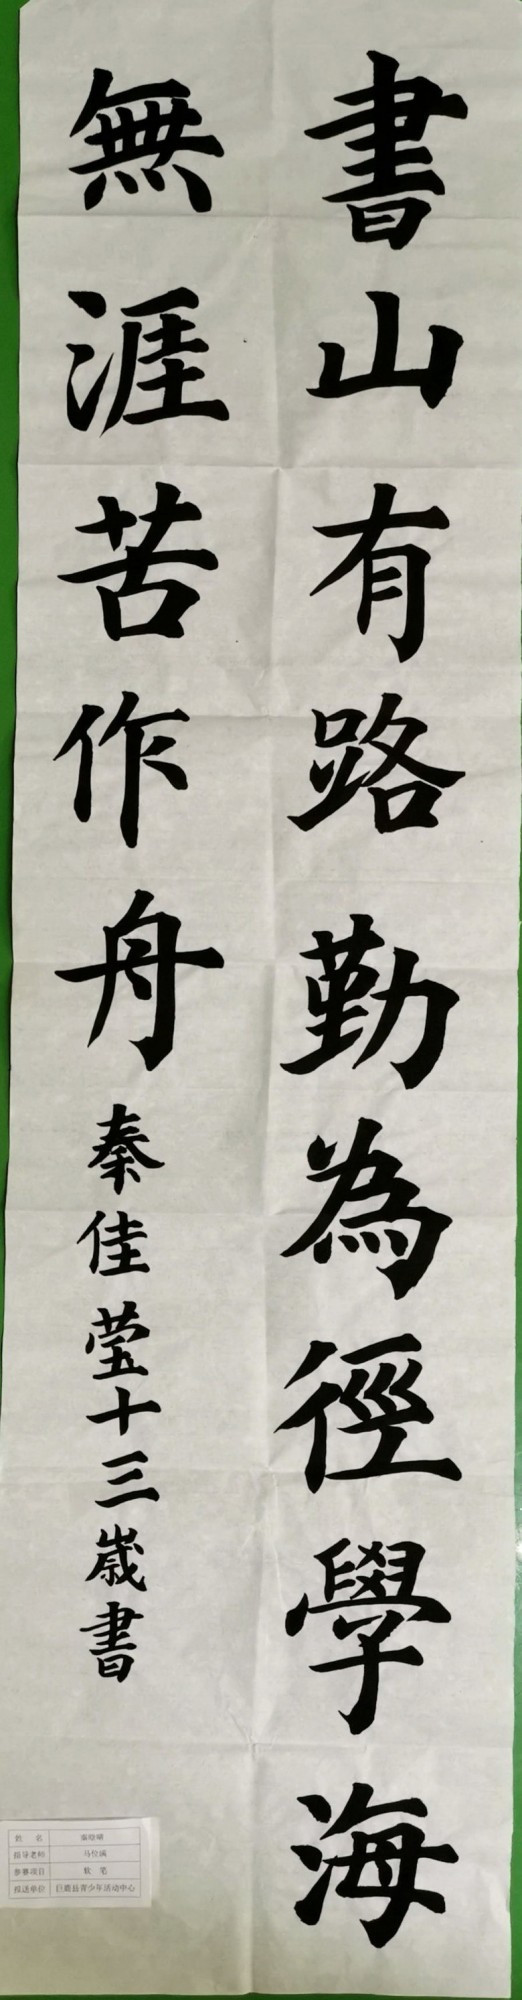 書山有路勤為徑學海
無涯苦作舟 秦佳莹十三歲書
姓 名
指导老师
参赛项目 软 笔
报送单位 巨鹿县青少年活动中心